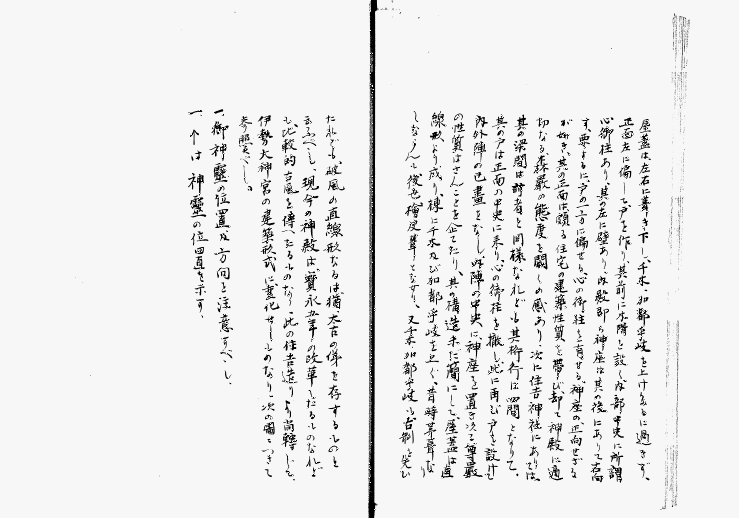 屋蓋は左右に葺き下し、千木、加都乎岐を上けたるに過きす、
正面左に偏して戸を作り、其前に木階を設く、内部中央に所謂
心御柱あり、其の左に壁あり、内殿即ち神座は其の後にありて右向
す、要するに戸の一方に偏せる、心の御柱を有せる、神座の正向せさる
が如き、其の正面は頗る住宅の建築性質を帯び、却て神殿に適
切なる、森厳の態度を闕くの感あり、次に住吉神社にありては、
其の梁間は前者と同様なれども其桁行は四間となりて、
其の戸は正面の中央に来り、心の御柱を撤し、此に再び戸を設けて
内外陣の区画をなし、内陣の中央に神座を置き以て尊厳
の性質はさんことを企てたり、其の構造未だ簡にして、屋蓋は直
線形より成り、棟に千木及び加都乎岐を上く、昔時茅葺な
りしならんも後世檜皮葺となせり、又千木加都乎岐も古制を失ひ
たれども、破風の直線形なるは猶、太古の俤を存するものと
云ふべし、現今の神殿は、宝永五年の改革したるものなれど
も比較的古風を傳へたるものなり、此の住吉造りより一転して、
伊勢大神宮の建築形式に変化せしものなり、次の図につきて
参照すべし。
一、御神霊の位置及方向を注意すべし、
一、个は神霊の位置を示す、